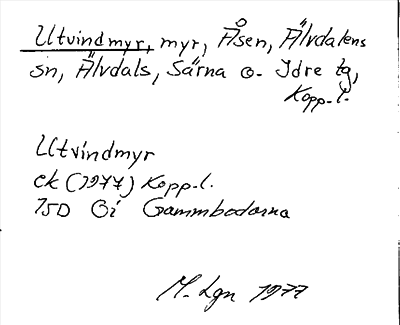 Utvindmyr, myr, Åsen, Älvdalens
sn, Älvdals, Särna o. Idre tg,
Kopp.l.
Utvindmyr
ek (1977) Kopp.l.
15D Gi Gammbodarna
M. Lgn 1977